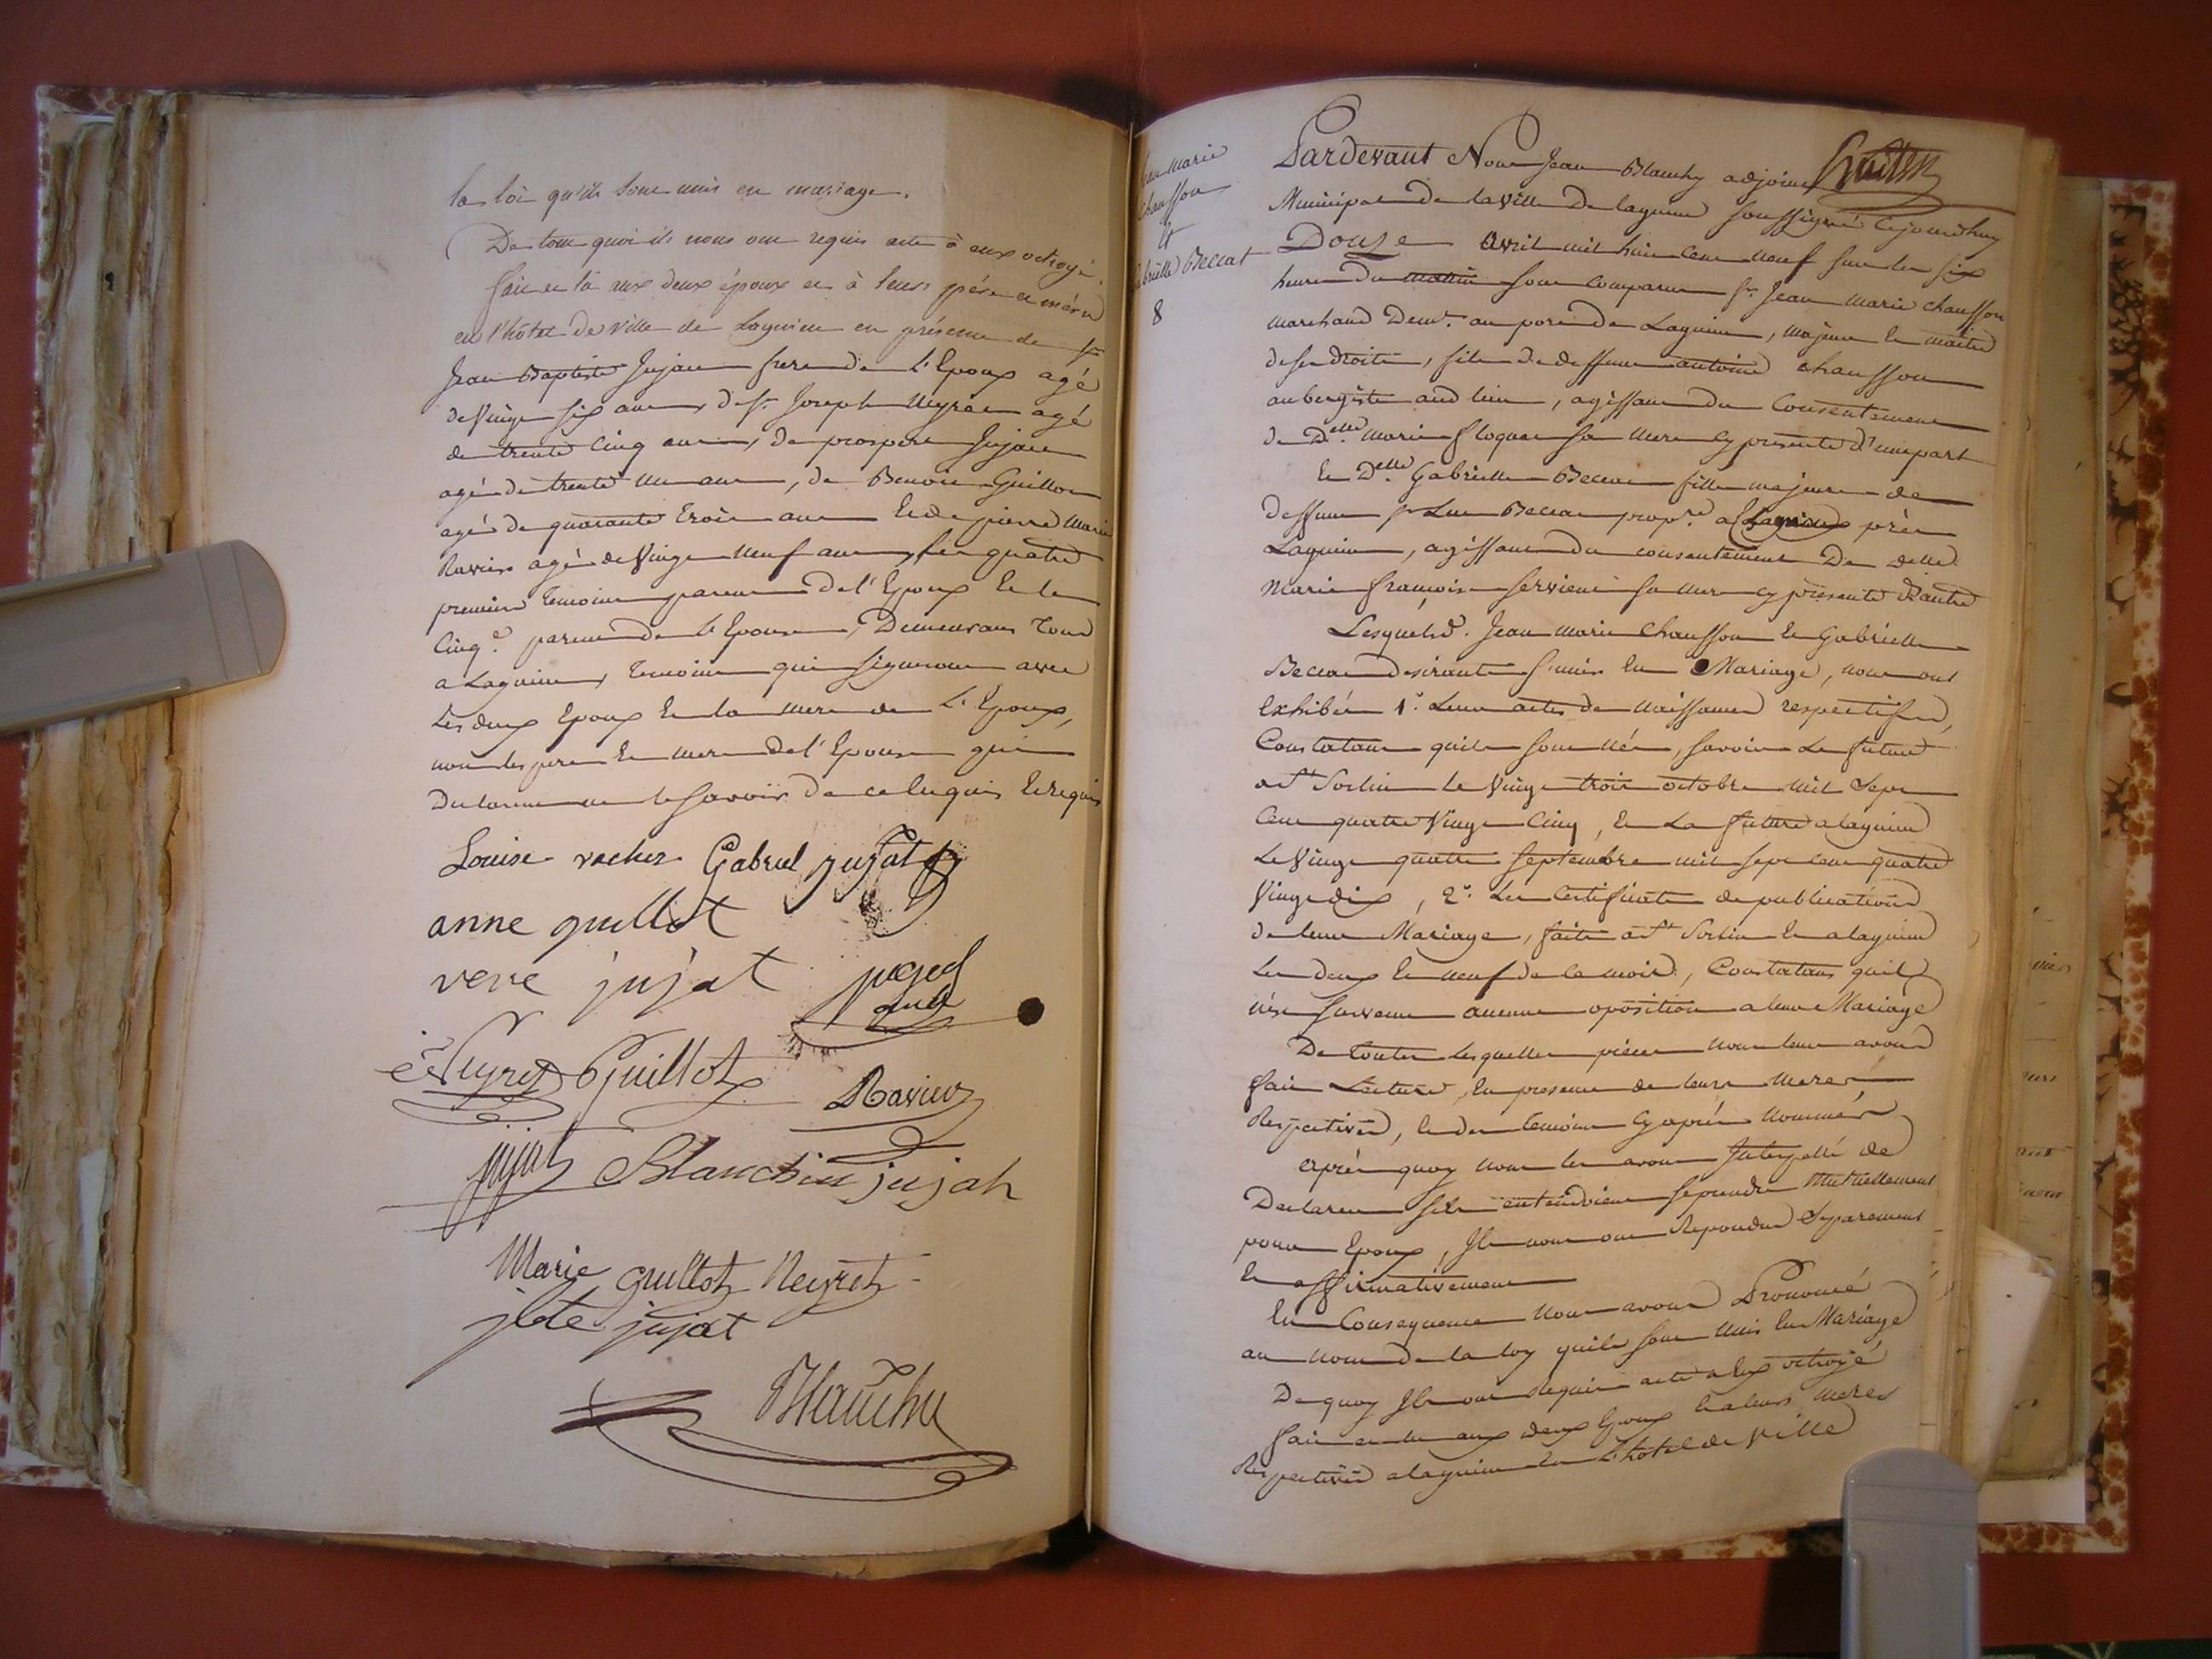 la loi qu'ils sont unis en mariage.
De tout quoi ils nous ont requis acte à eux octroyé.
fait et lû aux deux époux et à leurs père et mère
en l'hôtel de ville de Lagnieu en présence de sr
Jean Baptiste Jujat frere de L'Epoux agé
de Vingt six ans, de sr Joseph Neyret agé
de trente cinq ans, de prospere Jujat
agé de trente un ans, de Benoit Guillot
agé de quarante trois ans Et de pierre Marie
Ravier agé de Vingt neuf ans, les quatre
premiers temoins parens de l'Epoux Et le
Cinqe. parent de l'Epouse, Demeurans Tous
a Lagnieu, temoins qui signeront avec
Les deux Epoux Et la mere de L'Epoux,
non les pere Et mere de l'Epouse qui
Declarent ne le savoir de ce enquis Et requis
Louise vacher Gabriel jujat
anne guillot
veve jujat
Neyret Guillot Ravier
jujat Blanchin jujat
Marie guillot Neyret
jujat
Blanchy
Jean marie
chausson
Et
Gabrielle Beccat
8
Pardevant Nous Jean Blanchy adjoint
Municipal de la Ville De lagnieu soussigné cejourdhuy
Douze avril mil huit Cent neuf sur les six
heures du matin sont comparus sr. Jean marie chausson
marchand Demt. au port de Lagnieu, majeur Et maitre
de ses droits, fils de deffunt antoine chausson
aubergiste aud lieu, agissant du Consentement
de Delle. marie floquet sa Mere cy presente d'une part
Et Delle. Gabrielle Beccat fille majeure de
deffunt sr Luc Beccat propre. a près
Lagnieu, agissant du consentement De delle
Marie françoise servient sa mere cy presente d'autre
Lesquels. Jean marie Chausson Et Gabrielle
Beccat desirants s'unir En Mariage, nous ont
Exhibés 1°. Leurs actes de Naissances respectifs,
Constatant quils sont nés, savoir Le futur
a St Sorlin le Vingt trois octobre mil Sept
Cent quatre Vingt Cinq, Et La future a lagnieu
Le Vingt quatre septembre mil sept cent quatre
Vingt dix, 2°. Les Certificats de publications
de leur Mariage, faits a St Sorlin Et a lagnieu
Les deux Et neuf de ce mois, Constatans quil
n'est survenu aucune oposition a leur Mariage
De toutes lesquelles pieces nous leur avons
fait Lecture, En presence de leurs Meres
Respectives, Et des temoins cy après nommés
après quoy nous les avons Interpellé de
Declarer sils entendoient se prendre Mutuellement
pour Epoux, Ils nous ont Repondus Separement
Et affirmativement
En Consequence nous avons Prononcé
au nom de la loy quils sont Unis En Mariage
De quoy Ils ont Requis acte a Eux octroyé
fait et lu aux deux Epoux Et a leurs meres
Respectives a lagnieu En L'hotel de Ville